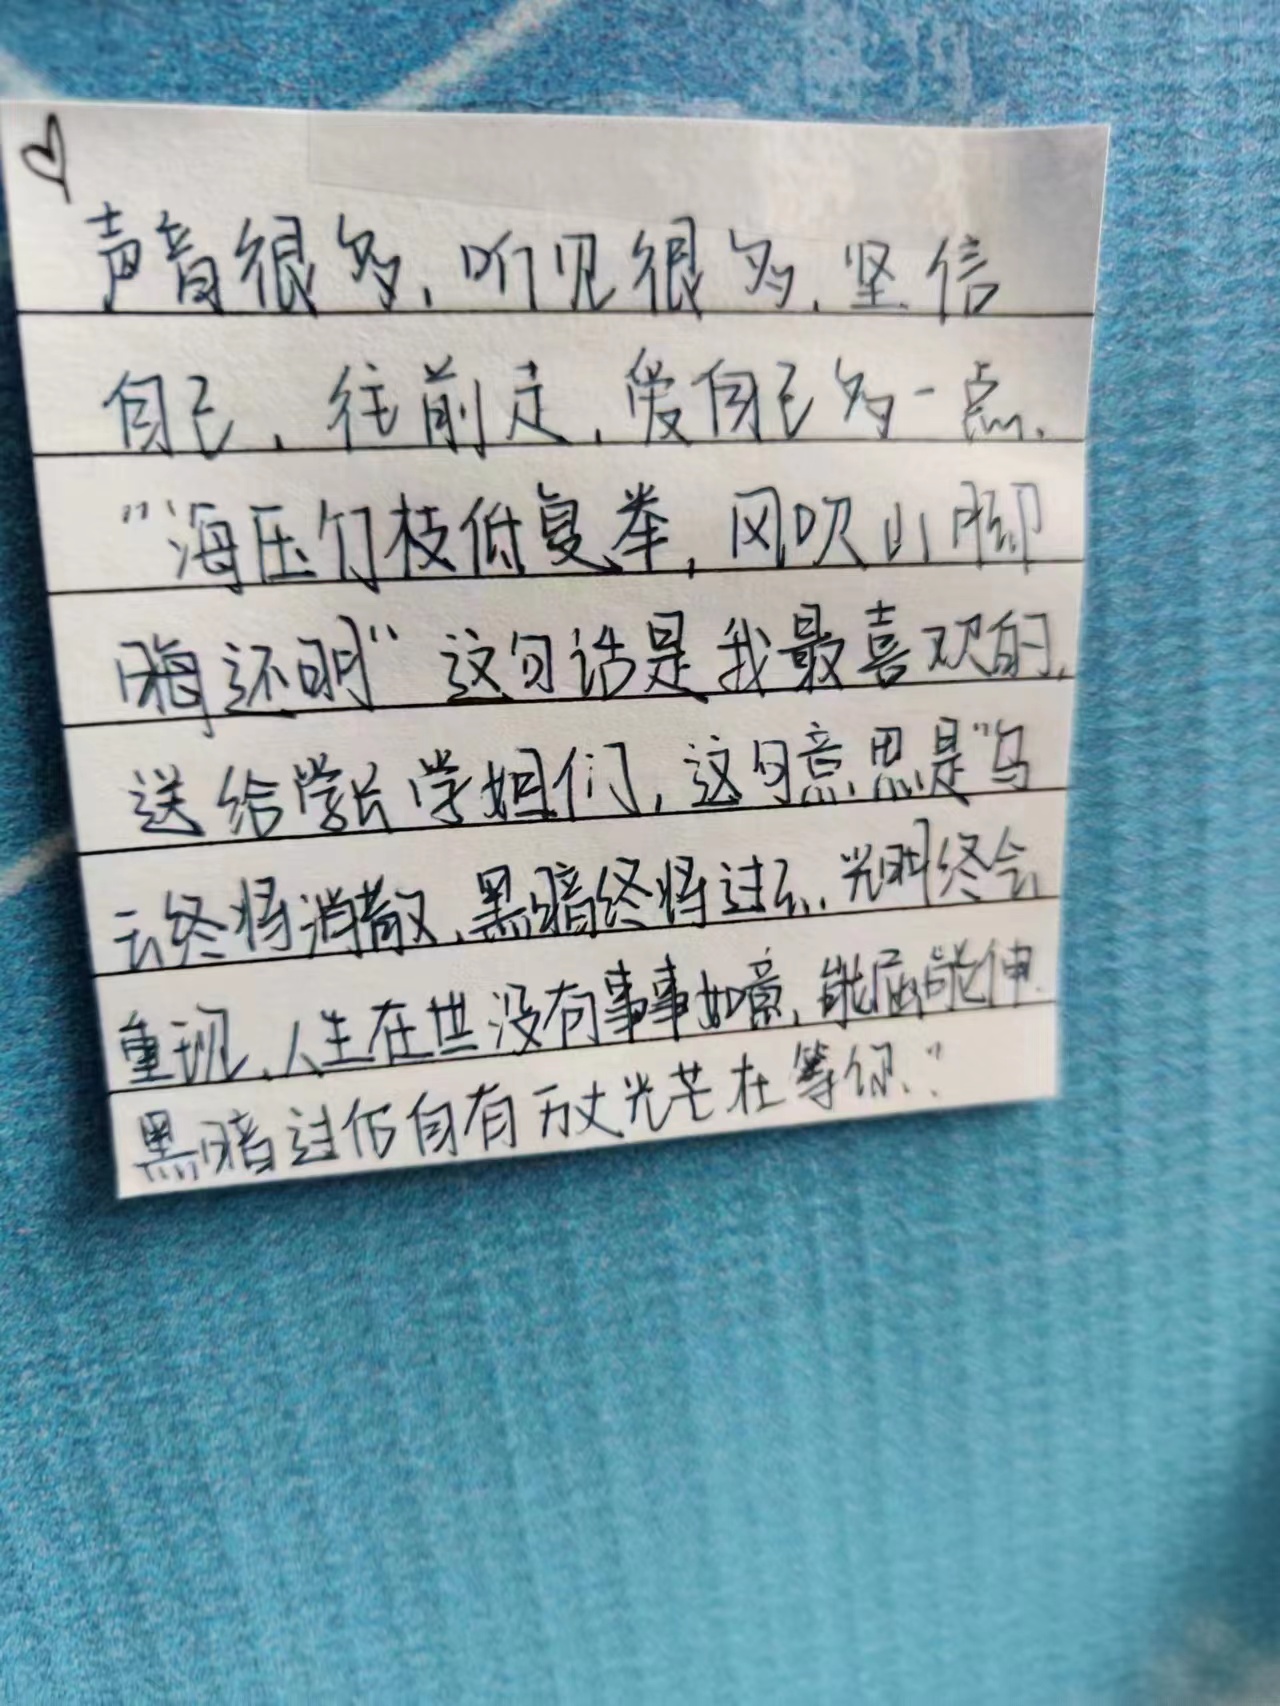 声音很多,听见很多,坚信
自己,往前走,爱自己多一点.
"海压竹枝低复举,风吹山脚
晦还明"这句话是我最喜欢的,
送给学长学姐们,这句意思是"乌
云终将消散,黑暗终将过去,光明终会
重现,人生在世没有事事如意,能屈能伸.
黑暗过后自有万丈光芒在等你."